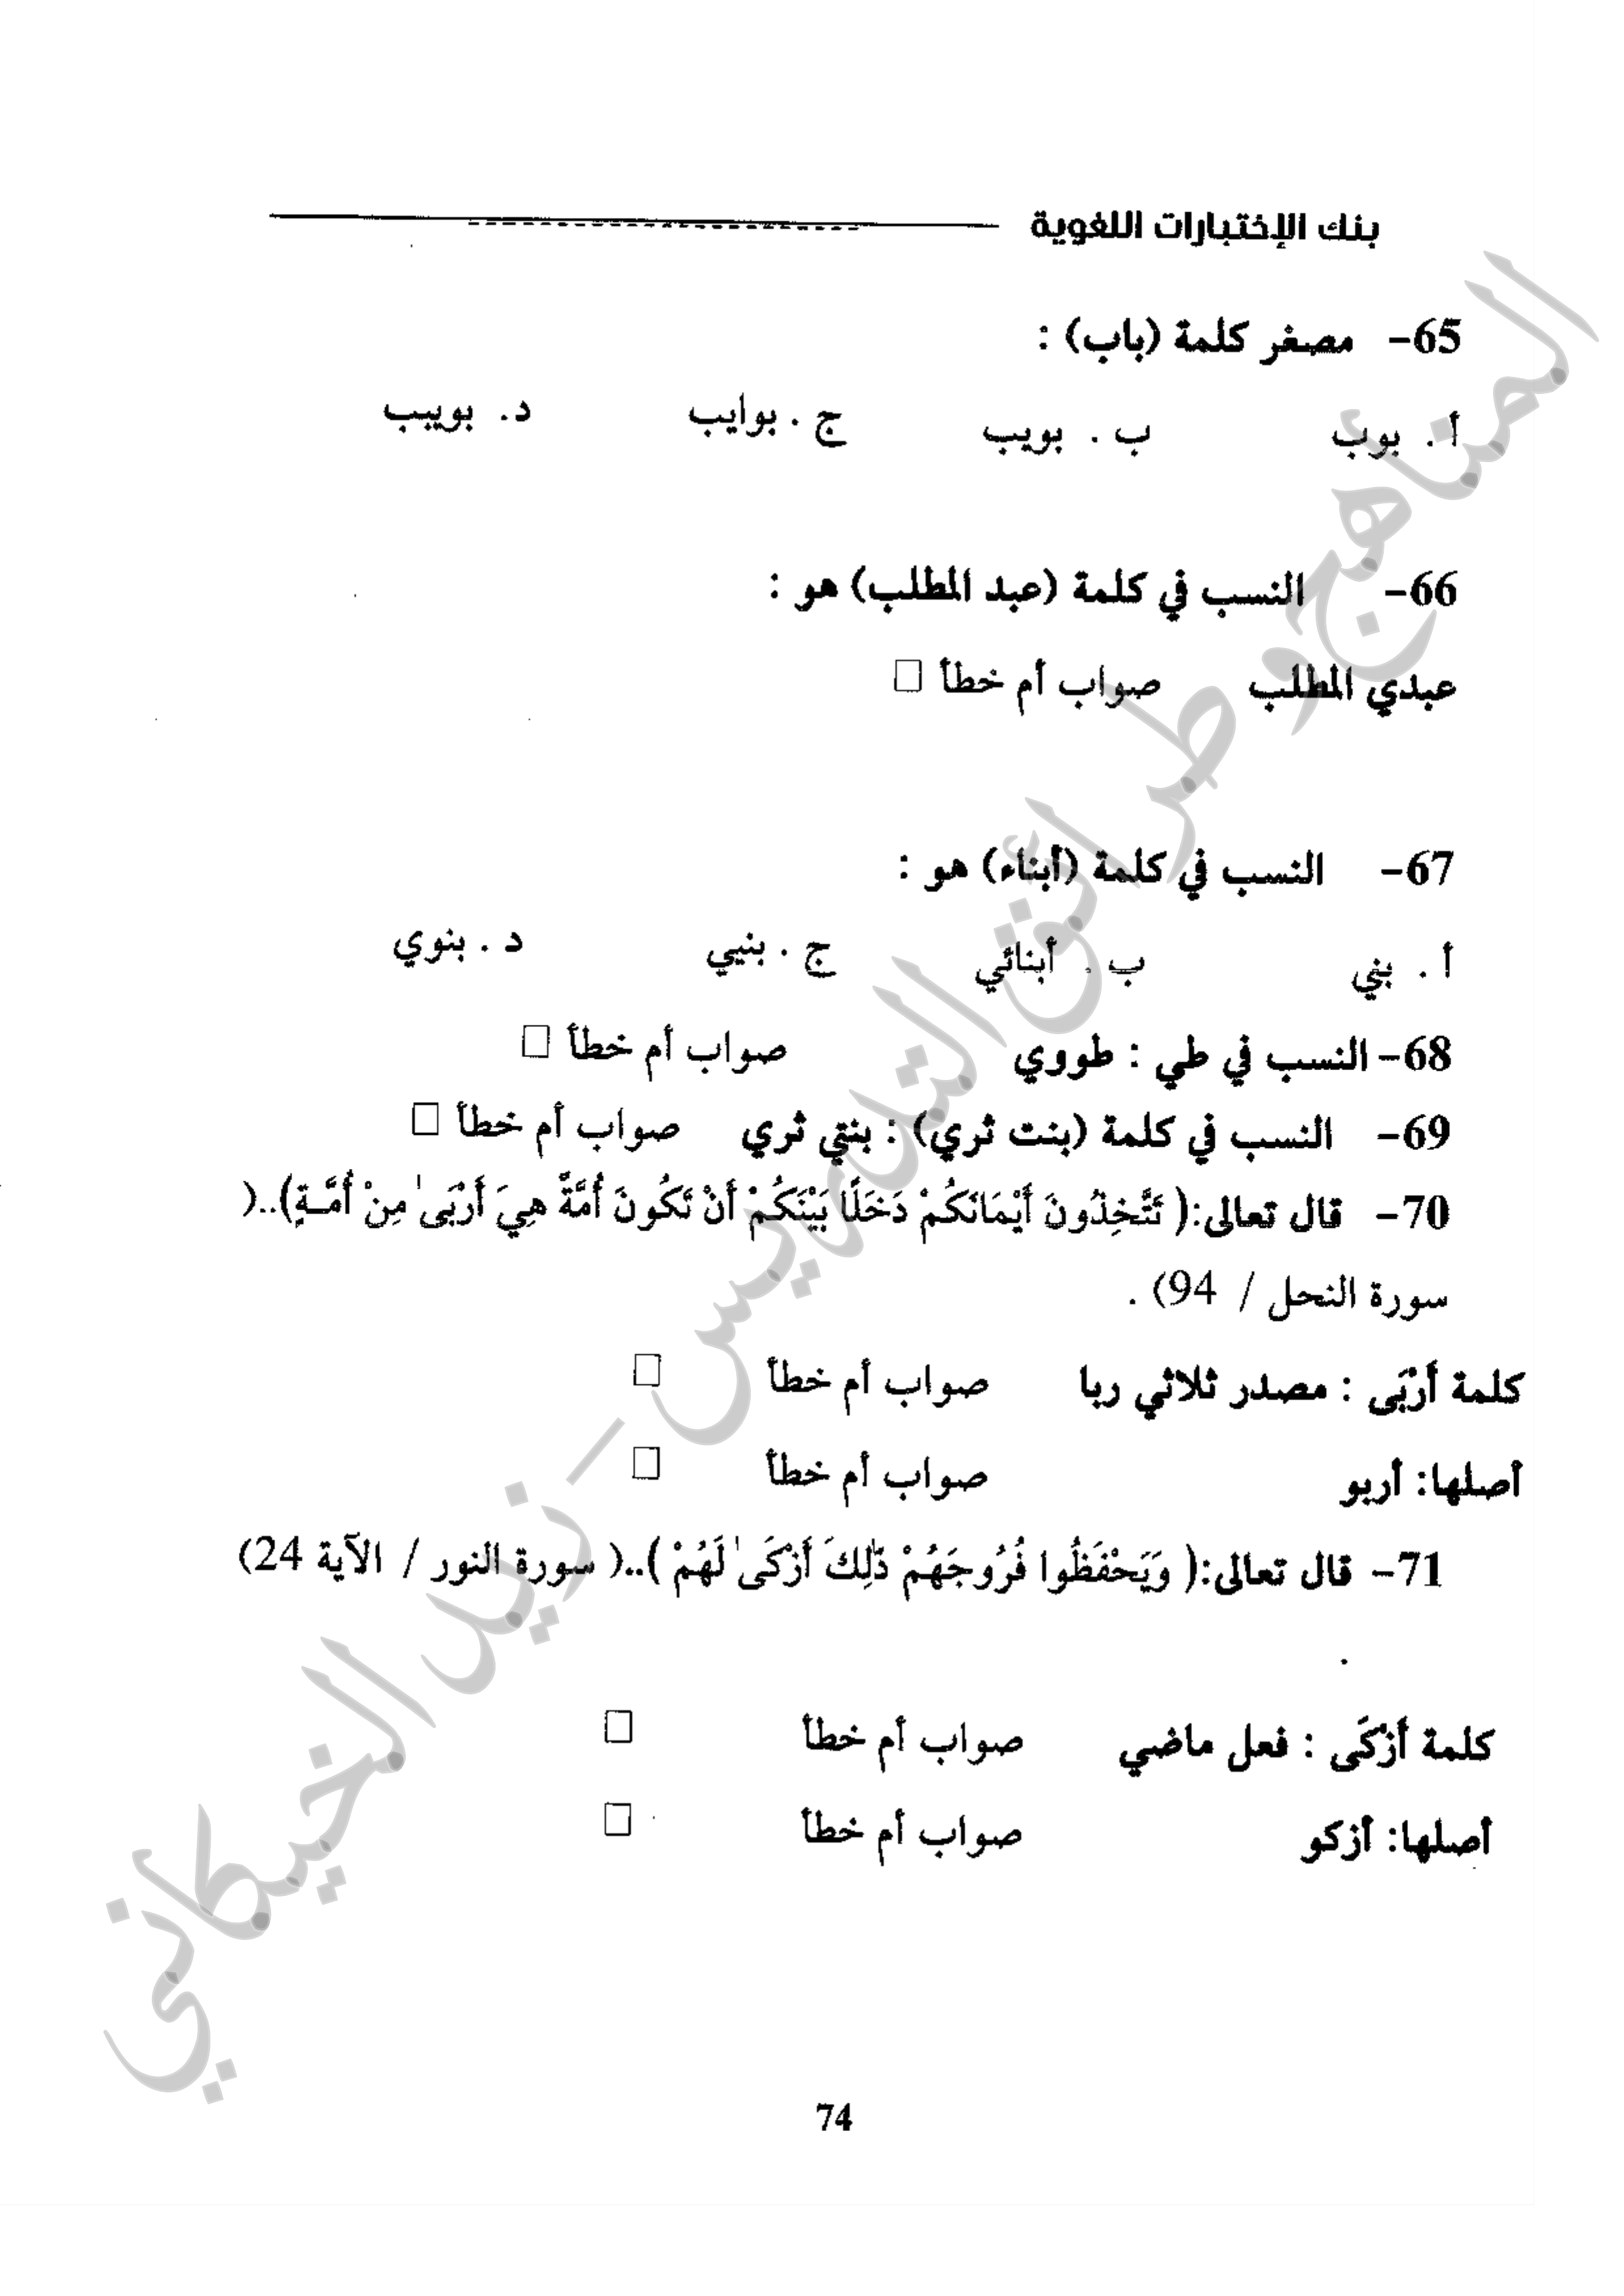 بنك الإختبارات اللغوية
65- مصغر كلمة (باب) :
أ . بوب ب . بويب ج . بوايب د . بوييب
66- النسب في كلمة (عبد المطلب) هو :
عبدي المطلب صواب أم خطأ □
67- النسب في كلمة (أبناء) هو :
أ . بني ب . أبنائي ج . بنيي د . بنوي
68- النسب في طي : طووي صواب أم خطأ □
69- النسب في كلمة (بنت ثري) : بنتي ثري صواب أم خطأ □
70- قال تعالى:( تَتَّخِذُونَ أَيْمَانَكُمْ دَخَلًا بَيْنَكُمْ أَنْ تَكُونَ أُمَّةٌ هِيَ أَرْبَى مِنْ أُمَّـةٍ)..(
سورة النحل / 94) .
كلمة أَرْبَى : مصدر ثلاثي ربا صواب أم خطأ □
أصلها: أربو صواب أم خطأ □
71- قال تعالى:( وَيَحْفَظُوا فُرُوجَهُمْ ذَٰلِكَ أَزْكَى لَهُمْ )..( سورة النور / الآية 24)
.
كلمة أَزْكَى : فعل ماضي صواب أم خطأ □
أصلها: أزكو صواب أم خطأ □
74
المناهج وطرائق التدريس - زيد الخيكاني